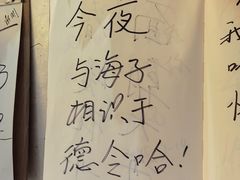 今夜
与海子
相识于
德令哈!